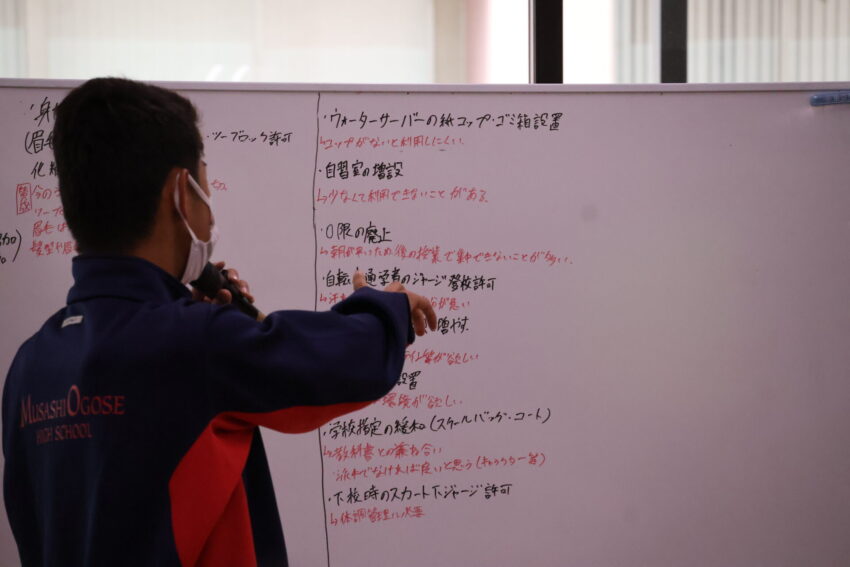 身
(眉
・ツーブロック許可
化粧
賛成
今の
ツーブ
眉毛は
髪型や眉
加
MUSASHI OGOSE
HIGH SCHOOL
・ウォーターサーバーの紙コップ・ゴミ箱設置
↳コップがないと利用しにくい。
・自習室の増設
↳少なくて利用できないことがある。
・0限の廃止
↳朝が早いため、後の授業で集中できないことが多い。
・自転 通学者のジャージ登校許可
が悪い
増やす。
が欲しい
設置
環境が欲しい。
・学校指定の緩和(スクールバッグ・コート)
↳教科書との兼ね合い
・派手でなければ良いと思う(
・下校時のスカート下ジャージ許可
↳体調管理に必要